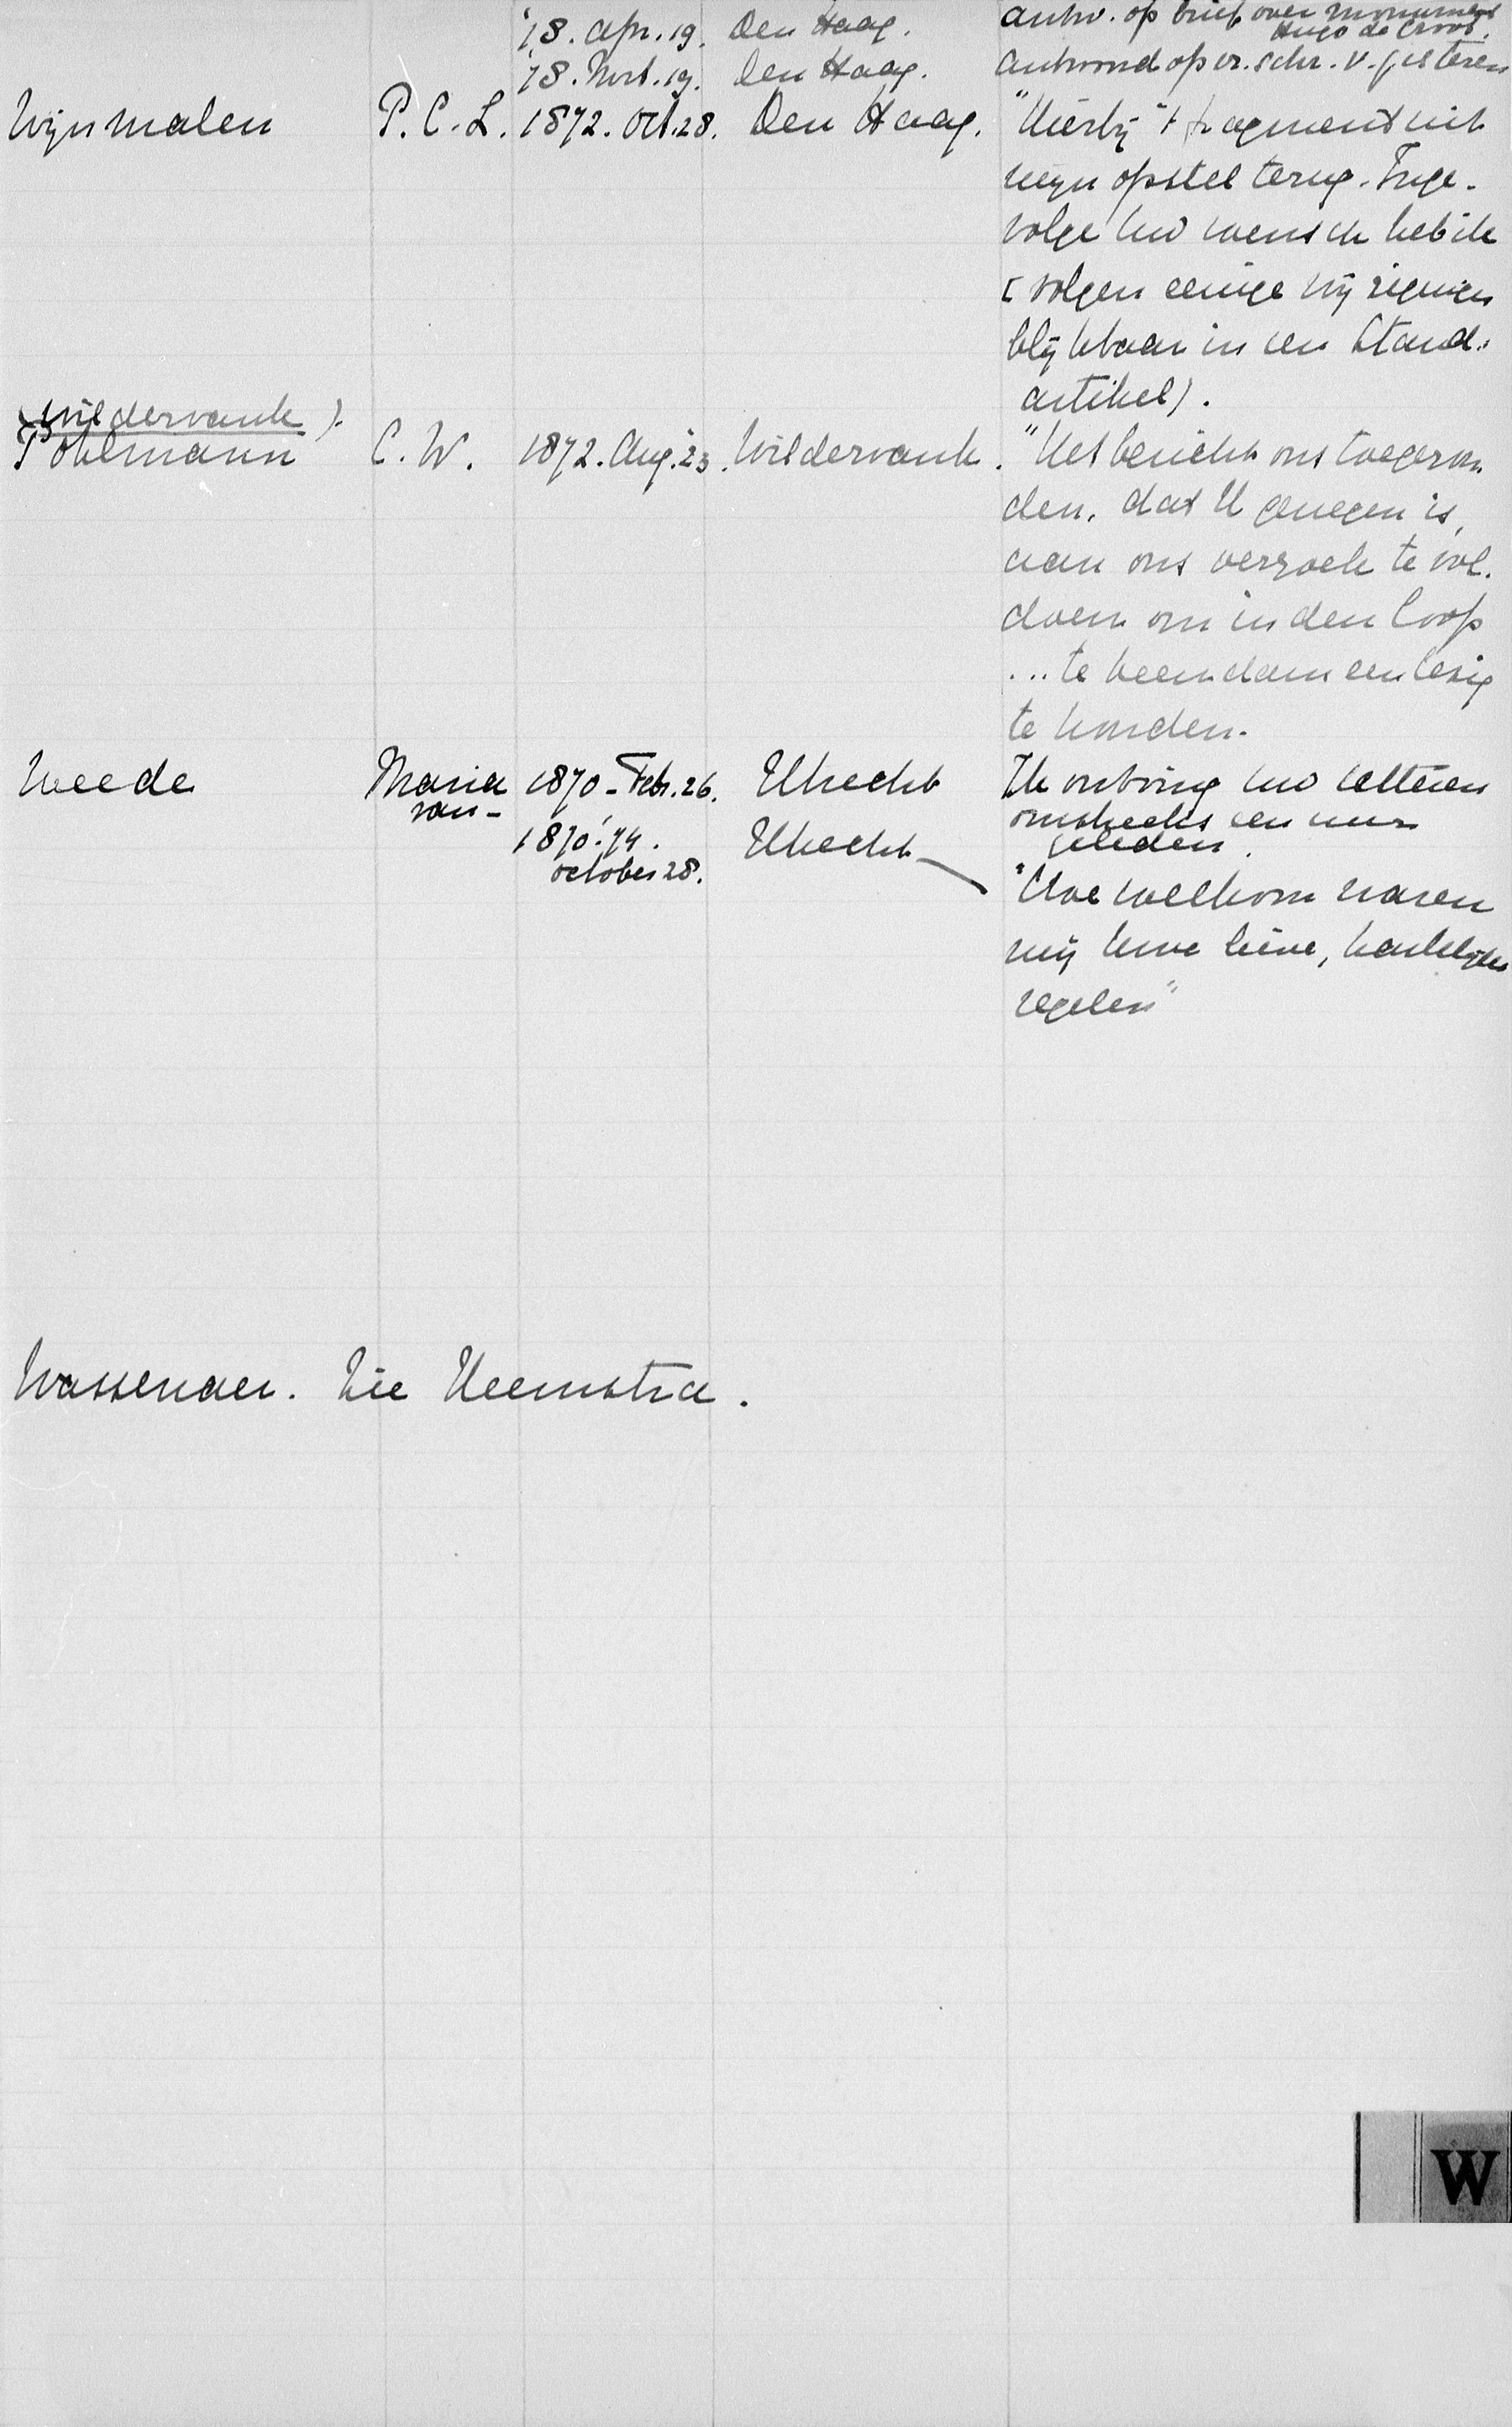 '78. Apr. 19. Den Haag. antw. op brief over monument
Hugo de Groot.
'78. Nov. 19. Den Haag. Antwoord op vr. schr. v. gisteren
Wijnmalen P. C. L. 1872. Oct. 28. Den Haag. "Hierbij 't fragment uit
mijn opstel terug. Inge-
volge Uw wensch heb ik
[volgen eenige wijzigingen
blijkbaar in een Stand.
artikel).
(Wildervank).
Pohlmann C. W. 1872. Aug. 23. Wildervank. "Het bericht ons toegezon
den, dat U genegen is,
aan ons verzoek te vol.
doen om in den loop
... te Veendam een lezing
te houden.
Weede Maria 1870 - Febr. 26. Utrecht Ik ontving Uw letteren
van - omstreeks een uur
geleden.
1870.'74. Utrecht
october 28. "Hoe welkom waren
mij Uwe lieve, hartelijke
regelen"
Wassenaer. Zie Heemstra.
W